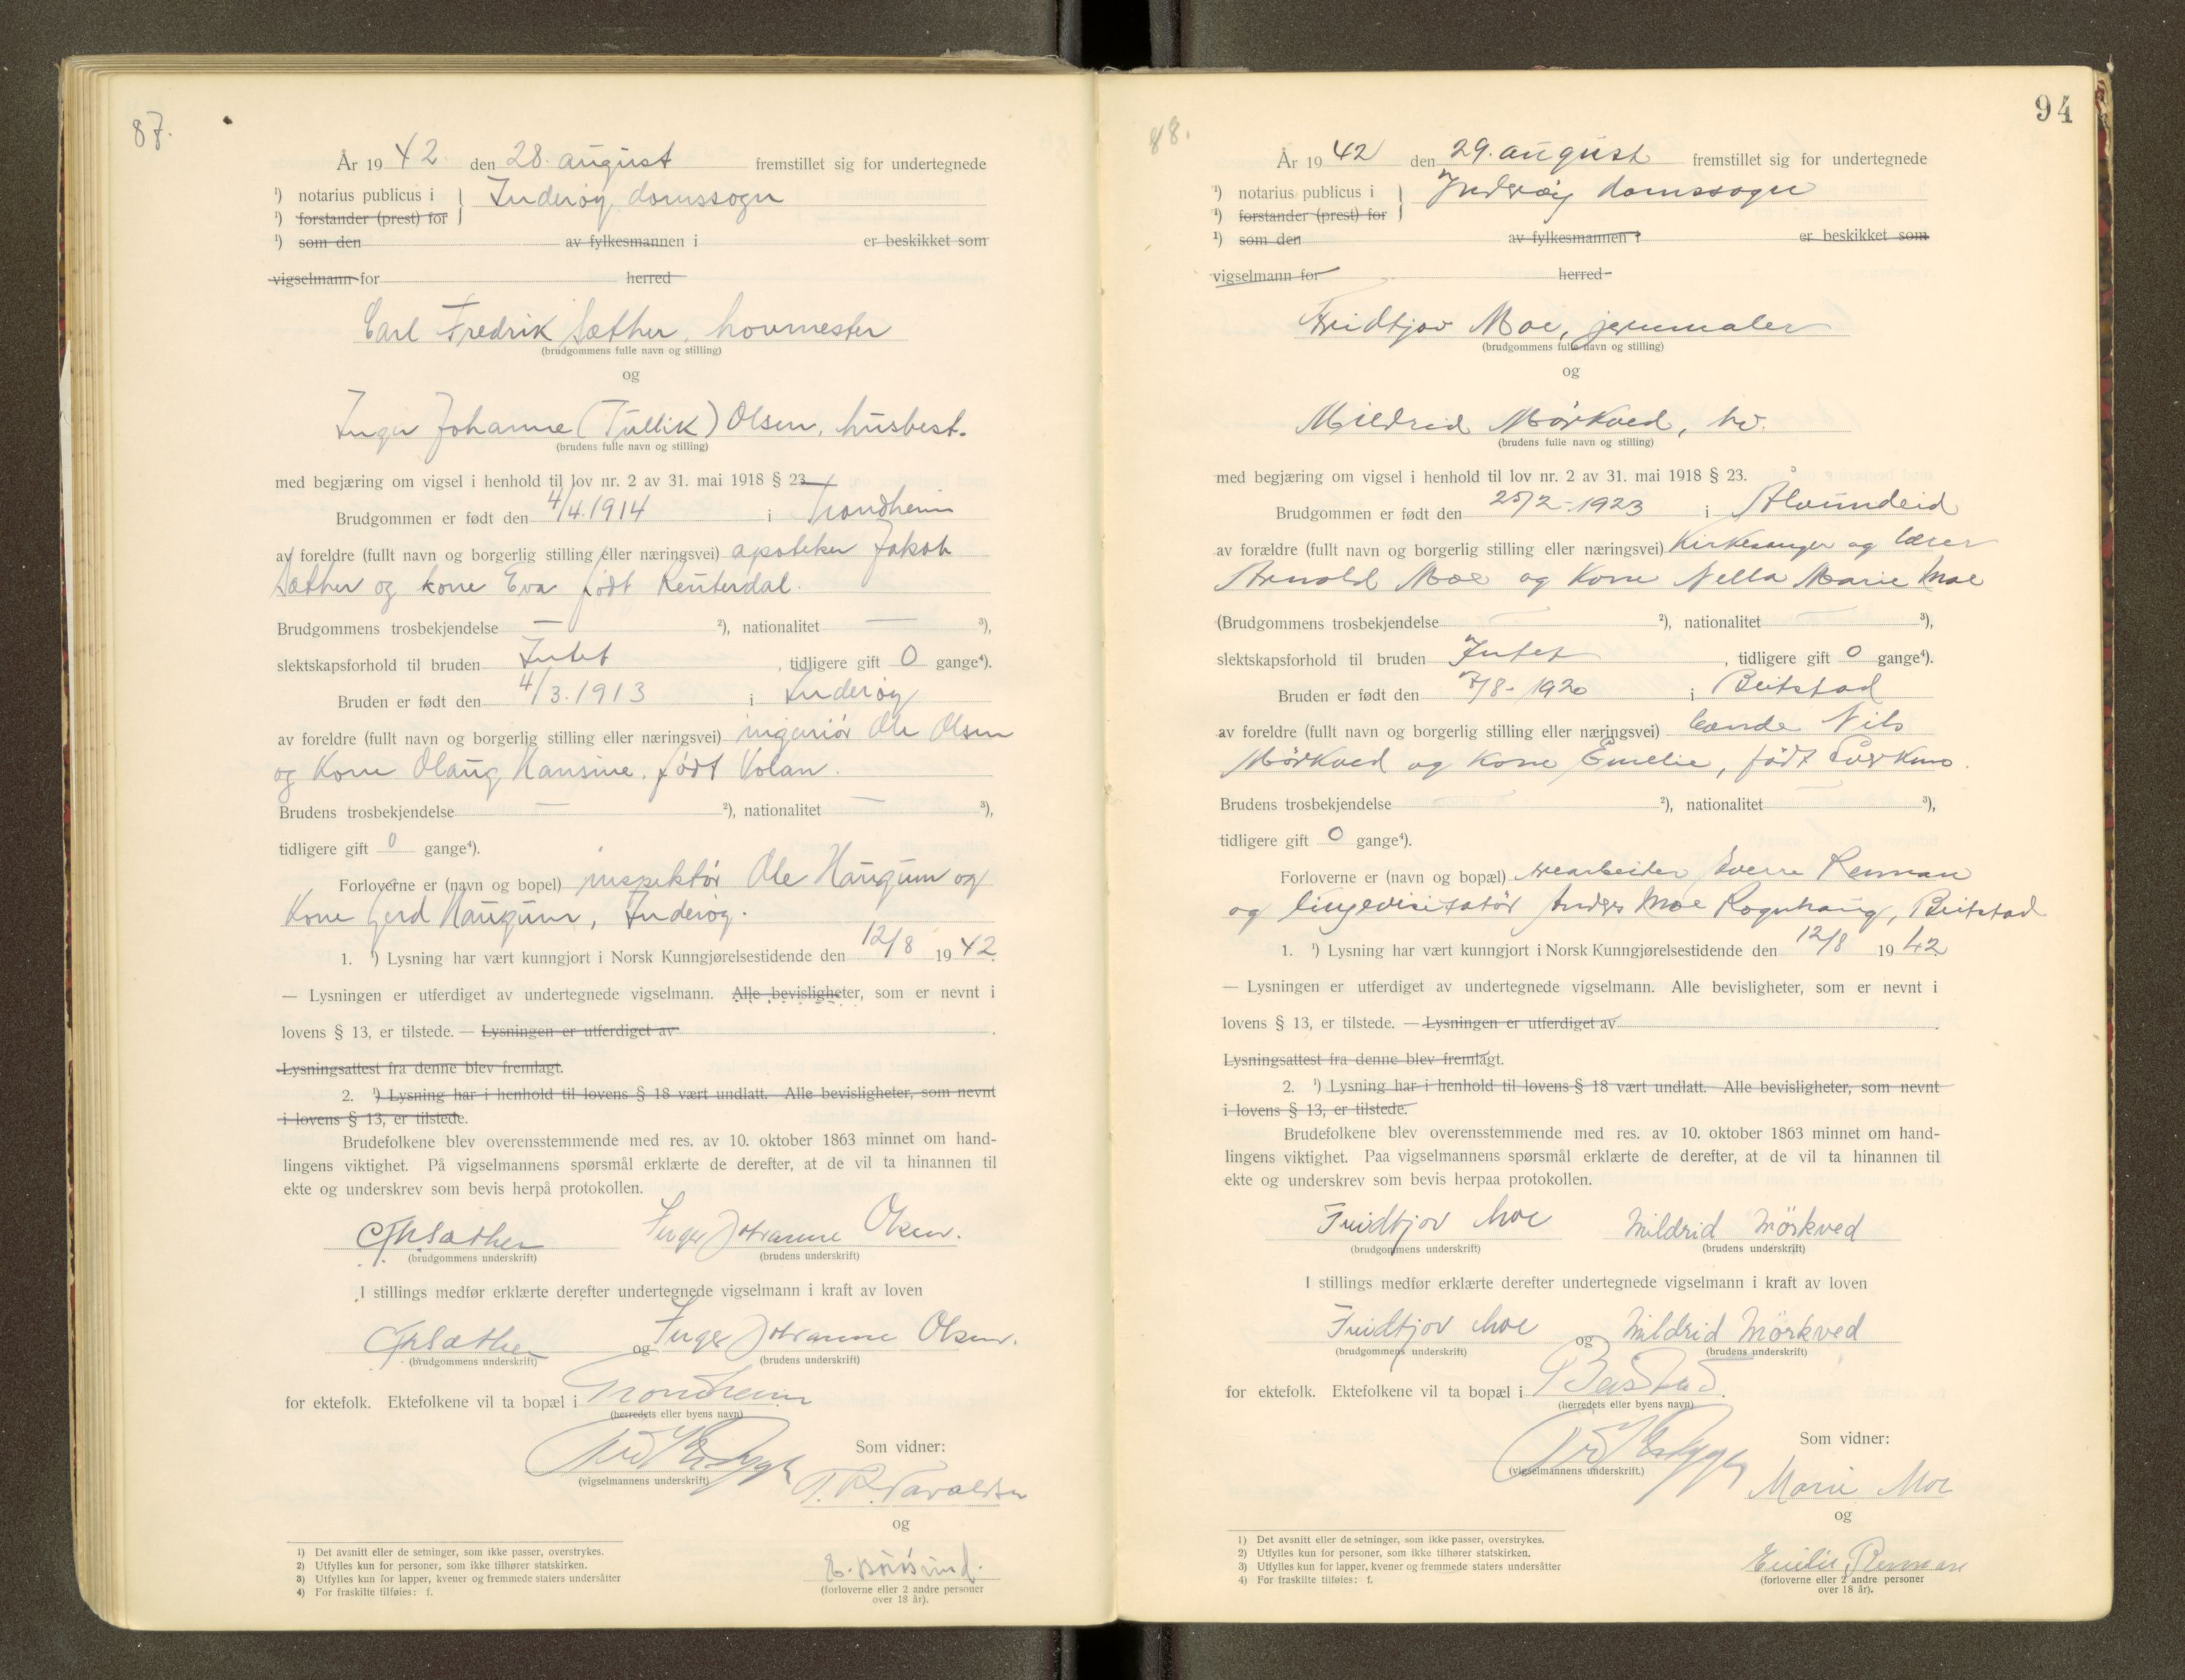 87.
År 1942 den 28. august fremstillet sig for undertegnede
¹) notarius publicus i } Inderøy domssogn
¹) forstander (prest) for
¹) som den av fylkesmannen i er beskikket som
vigselmann for herred
Carl Fredrik Sæther, hovmester
(brudgommens fulle navn og stilling)
og
Inger Johanne (Tullik) Olsen, husbest.
(brudens fulle navn og stilling)
med begjæring om vigsel i henhold til lov nr. 2 av 31. mai 1918 § 23
Brudgommen er født den 4/4.1914 i Trondheim
av foreldre (fullt navn og borgerlig stilling eller næringsvei) apoteker Jakob
Sæther og kone Eva født Reuterdal.
Brudgommens trosbekjendelse — ²), nationalitet — ³),
slektskapsforhold til bruden Intet, tidligere gift 0 gange⁴).
Bruden er født den 4/3.1913 i Inderøy
av foreldre (fullt navn og borgerlig stilling eller næringsvei) ingeniør Ole Olsen
og Kone Olaug Hansine, født Volan.
Brudens trosbekjendelse — ²), nationalitet — ³),
tidligere gift 0 gange⁴).
Forloverne er (navn og bopel) inspektør Ole Haugum og
Kone Gerd Haugum, Inderøy.
1. ¹) Lysning har vært kunngjort i Norsk Kunngjørelsestidende den 12/8 1942.
— Lysningen er utferdiget av undertegnede vigselmann. Alle bevisligheter, som er nevnt i
lovens § 13, er tilstede. — Lysningen er utferdiget av
Lysningsattest fra denne blev fremlagt.
2. ¹) Lysning har i henhold til lovens § 18 vært undlatt. Alle bevisligheter, som nevnt
i lovens § 13, er tilstede.
Brudefolkene blev overensstemmende med res. av 10. oktober 1863 minnet om hand-
lingens viktighet. På vigselmannens spørsmål erklærte de derefter, at de vil ta hinannen til
ekte og underskrev som bevis herpå protokollen.
CFrSæther Inger Johanne Olsen.
(brudgommens underskrift) (brudens underskrift)
I stillings medfør erklærte derefter undertegnede vigselmann i kraft av loven
CFrSæther og Inger Johanne Olsen.
(brudgommens underskrift) (brudens underskrift)
for ektefolk. Ektefolkene vil ta bopæl i Trondheim
(herredets eller byens navn)
Som vidner:
(vigselmannens underskrift)
og
(forloverne eller 2 andre personer
over 18 år).
1) Det avsnitt eller de setninger, som ikke passer, overstrykes.
2) Utfylles kun for personer, som ikke tilhører statskirken.
3) Utfylles kun for lapper, kvener og fremmede staters undersåtter
4) For fraskilte tilføies: f.
94
88.
År 1942 den 29. august fremstillet sig for undertegnede
¹) notarius publicus i } Inderøy domssogn
¹) forstander (prest) for
¹) som den av fylkesmannen i er beskikket som
vigselmann for herred
Fridtjov Moe, jernmaler
(brudgommens fulle navn og stilling)
og
Mildrid Mørkved, hv.
(brudens fulle navn og stilling)
med begjæring om vigsel i henhold til lov nr. 2 av 31. mai 1918 § 23.
Brudgommen er født den 25/2-1923 i Ålvundeid
av forældre (fullt navn og borgerlig stilling eller næringsvei) Kirkesanger og lærer
Arnold Moe og Kone Nella Marie Moe
(Brudgommens trosbekjendelse — ²), nationalitet — ³),
slektskapsforhold til bruden Intet, tidligere gift 0 gange⁴).
Bruden er født den 7/8-1920 i Beitstad
av foreldre (fullt navn og borgerlig stilling eller næringsvei) bonde Nils
Mørkved og Kone Emelie, født
Brudens trosbekjendelse — ²), nationalitet — ³),
tidligere gift 0 gange⁴).
Forloverne er (navn og bopæl) Sverre Renman
og linjevisitatør Anders Moe Rognhaug, Beitstad
1. ¹) Lysning har vært kunngjort i Norsk Kunngjørelsestidende den 12/8 1942
— Lysningen er utferdiget av undertegnede vigselmann. Alle bevisligheter, som er nevnt i
lovens § 13, er tilstede. — Lysningen er utferdiget av
Lysningsattest fra denne blev fremlagt.
2. ¹) Lysning har i henhold til lovens § 18 vært undlatt. Alle bevisligheter, som nevnt
i lovens § 13, er tilstede.
Brudefolkene blev overensstemmende med res. av 10. oktober 1863 minnet om hand-
lingens viktighet. Paa vigselmannens spørsmål erklærte de derefter, at de vil ta hinannen til
ekte og underskrev som bevis herpaa protokollen.
Fridtjov Moe Mildrid Mörkved
(brudgommens underskrift) (brudens underskrift)
I stillings medfør erklærte derefter undertegnede vigselmann i kraft av loven
Fridtjov Moe og Mildrid Mörkved
(brudgommens underskrift) (brudens underskrift)
for ektefolk. Ektefolkene vil ta bopæl i Beitstad.
(herredets eller byens navn)
Som vidner:
(vigselmannens underskrift.)
Marie Moe
og
Emilie Renman
(forloverne eller 2 andre personer
over 18 år).
1) Det avsnitt eller de setninger, som ikke passer, overstrykes.
2) Utfylles kun for personer, som ikke tilhører statskirken.
3) Utfylles kun for lapper, kvener og fremmede staters undersåtter
4) For fraskilte tilføies: f.